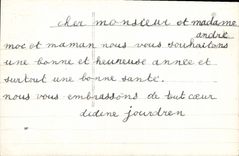 cher monsieur et madame
andré
moi et maman nous vous souhaitons
une bonne et heureuse année et
surtout une bonne santé.
nous vous embrassons de tout cœur
didine jourdren